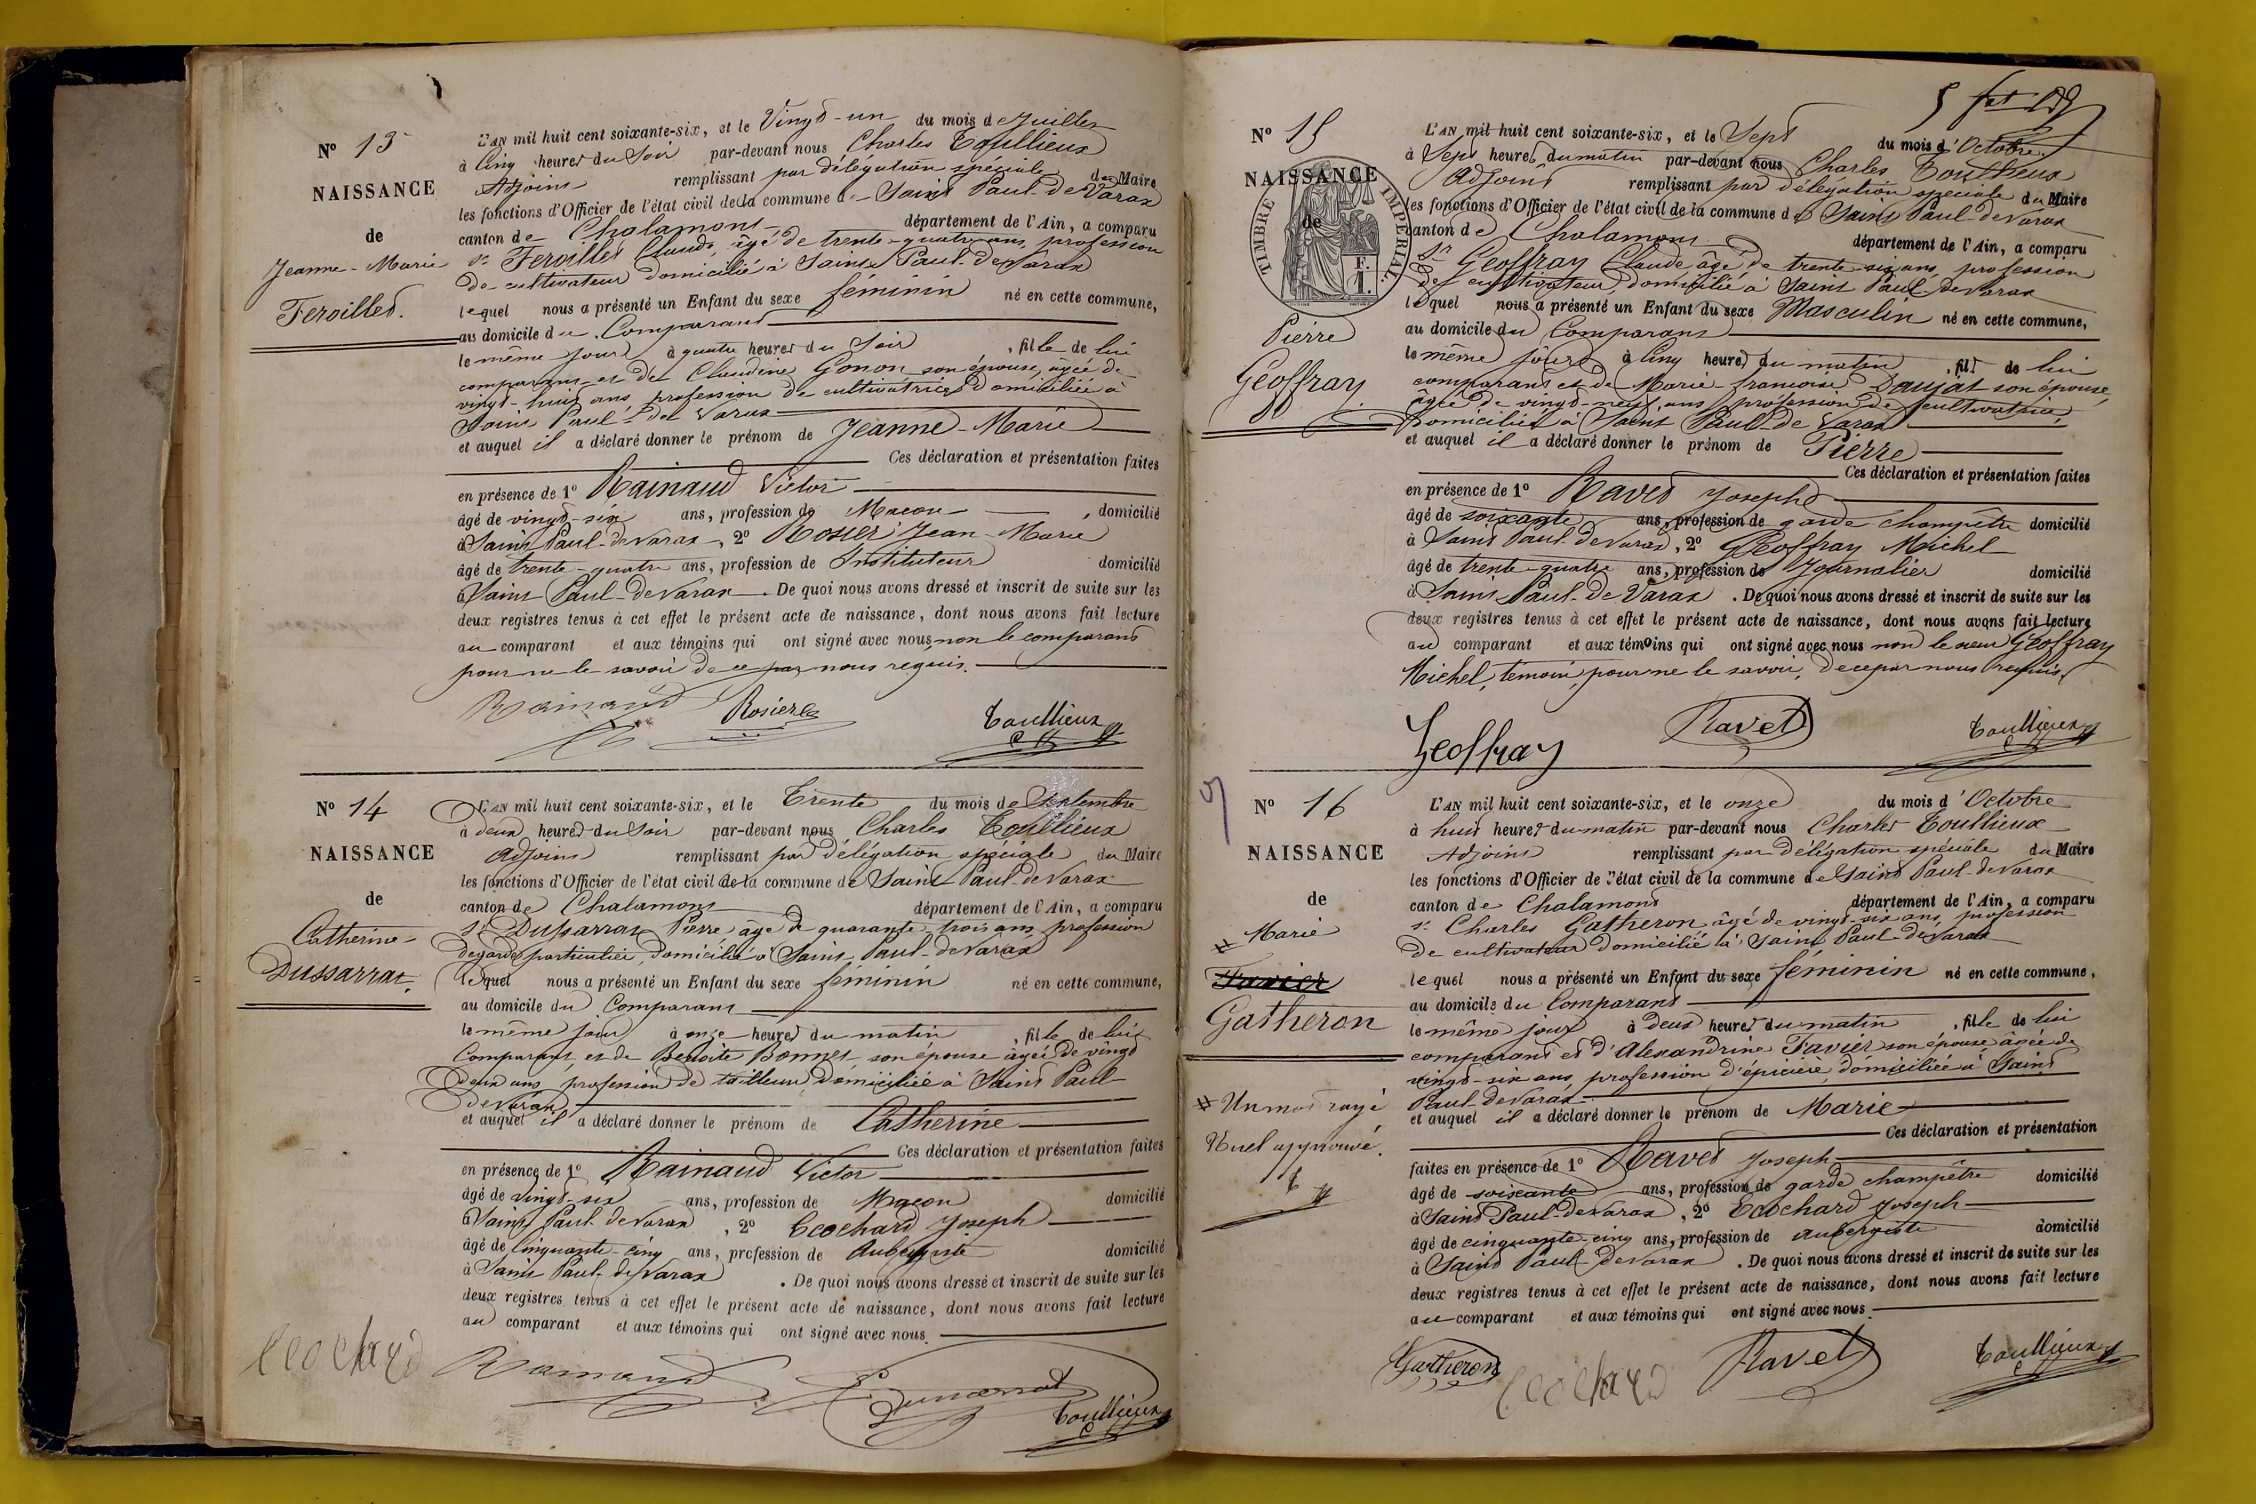 N° 13
NAISSANCE
de
Jeanne-Marie
Feroilles.
L'AN mil huit cent soixante-six, et le Vingt-un du mois de Juillet
à Cinq heures du Soir par-devant nous Charles Toullieux
Adjoint remplissant par délégation spéciale du Maire
les fonctions d'Officier de l'état civil de la commune de Saint Paul-de Varax
canton de Chalamont département de l'Ain, a comparu
Sr Feroilles Claude, âgé de trente-quatre ans, profession
de cultivateur domicilié à Saint Paul-de Varax
lequel nous a présenté un Enfant du sexe féminin né en cette commune,
au domicile du Comparant
le même jour à quatre heures du Soir, fille de lui
comparant et de Claudine Gonon son épouse, âgée de
vingt-huit ans, profession de cultivatrice domiciliée à
Saint Paul de Varax
et auquel il a déclaré donner le prénom de Jeanne-Marie
Ces déclaration et présentation faites
en présence de 1° Rainaud Victor
âgé de vingt-six ans, profession de Maçon, domicilié
à Saint Paul-de Varax, 2° Rosier Jean-Marie
âgé de trente-quatre ans, profession de Instituteur domicilié
à Saint Paul-de Varax. De quoi nous avons dressé et inscrit de suite sur les
deux registres tenus à cet effet le présent acte de naissance, dont nous avons fait lecture
au comparant et aux témoins qui ont signé avec nous, non le comparant
pour ne le savoir de ce par nous requis.
Rainaud Rosier Toullieux
N° 14
NAISSANCE
de
Catherine
Dussarrat.
L'AN mil huit cent soixante-six, et le Trente du mois de Septembre
à deux heures du Soir par-devant nous Charles Toullieux
Adjoint remplissant par délégation spéciale du Maire
les fonctions d'Officier de l'état civil de la commune de Saint Paul-de Varax
canton de Chalamont département de l'Ain, a comparu
Sr Dussarrat Pierre âgé de quarante-trois ans, profession
de garde particulier, domicilié à Saint Paul-de Varax
lequel nous a présenté un Enfant du sexe féminin né en cette commune,
au domicile du Comparant
le même jour à onze heures du matin, fille de lui
Comparant et de Benoite Bonnet son épouse âgée de vingt
deux ans, profession de tailleuse domiciliée à Saint Paul
de Varax
et auquel il a déclaré donner le prénom de Catherine
Ces déclaration et présentation faites
en présence de 1° Rainaud Victor
âgé de vingt-six ans, profession de Maçon domicilié
à Saint Paul de Varax, 2° Cochard Joseph
âgé de Cinquante-cinq ans, profession de Aubergiste domicilié
à Saint Paul-de Varax. De quoi nous avons dressé et inscrit de suite sur les
deux registres tenus à cet effet le présent acte de naissance, dont nous avons fait lecture
au comparant et aux témoins qui ont signé avec nous.
Cochard Rainaud Dussarrat Toullieux
N° 15
NAISSANCE
de
TIMBRE IMPERIAL
Pierre
Geoffray
L'AN mil huit cent soixante-six, et le Sept du mois d'Octobre
à Sept heures du matin par-devant nous Charles Toullieux
Adjoint remplissant par délégation spéciale du Maire
les fonctions d'Officier de l'état civil de la commune de Saint Paul-de Varax
canton de Chalamont département de l'Ain, a comparu
Sr Geoffray Claude, âgé de trente-six ans, profession
de cultivateur domicilié à Saint Paul-de Varax
lequel nous a présenté un Enfant du sexe Masculin né en cette commune,
au domicile du Comparant
le même jour à Cinq heures du matin, fils de lui
comparant et de Marie-françoise Daujat son épouse,
âgée de vingt-neuf ans, profession de cultivatrice,
domiciliée à Saint Paul-de Varax
et auquel il a déclaré donner le prénom de Pierre
Ces déclaration et présentation faites
en présence de 1° Ravet Joseph
âgé de soixante ans, profession de garde champêtre domicilié
à Saint Paul de Varax, 2° Geoffray Michel
âgé de trente-quatre ans, profession de Journalier domicilié
à Saint Paul-de Varax. De quoi nous avons dressé et inscrit de suite sur les
deux registres tenus à cet effet le présent acte de naissance, dont nous avons fait lecture
au comparant et aux témoins qui ont signé avec nous non le sieur Geoffray
Michel, témoin, pour ne le savoir, de ce par nous requis.
Geoffray Ravet Toullieux
N° 16
NAISSANCE
de
Marie
Favier
Gatheron
Un mot rayé
Nuel approuvé.
L'AN mil huit cent soixante-six, et le onze du mois d'Octobre
à huit heures du matin par-devant nous Charles Toullieux
Adjoint remplissant par délégation spéciale du Maire
les fonctions d'Officier de l'état civil de la commune de Saint Paul-de Varax
canton de Chalamont département de l'Ain, a comparu
Sr Charles Gatheron âgé de vingt-six ans, profession
de cultivateur domicilié à Saint Paul-de Varax
lequel nous a présenté un Enfant du sexe féminin né en cette commune,
au domicile du Comparant
le même jour à deux heures du matin, fille de lui
comparant et d'Alexandrine Favier son épouse âgée de
vingt-six ans, profession d'épicière, domiciliée à Saint
Paul-de Varax
et auquel il a déclaré donner le prénom de Marie
Ces déclaration et présentation
faites en présence de 1° Ravet Joseph
âgé de soixante ans, profession de garde champêtre domicilié
à Saint Paul-de Varax, 2° Cochard Joseph
âgé de cinquante-cinq ans, profession de aubergiste domicilié
à Saint Paul-de Varax. De quoi nous avons dressé et inscrit de suite sur les
deux registres tenus à cet effet le présent acte de naissance, dont nous avons fait lecture
au comparant et aux témoins qui ont signé avec nous
Gatheron Cochard Ravet Toullieux